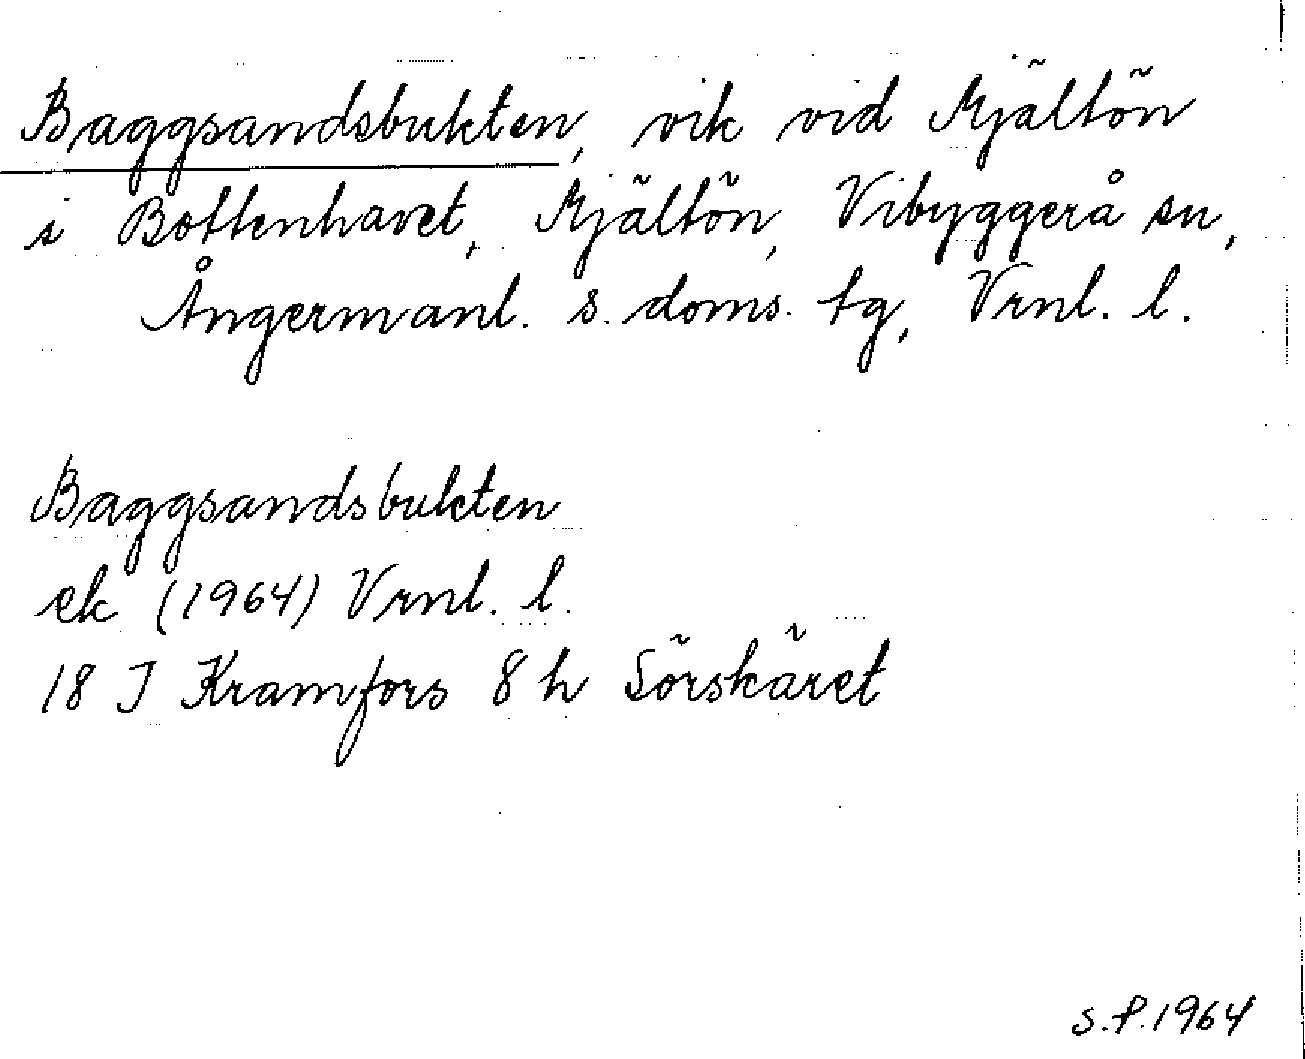 Baggsandsbukten, vik vid Mjältön
i Bottenhavet, Mjältön, Vibyggerå sn,
Ångermanl. s. doms. tg, Vrnl. l.
Baggsandsbukten
ek (1964) Vrnl. l.
18 J Kramfors 8 h Sörskäret
S.P.1964